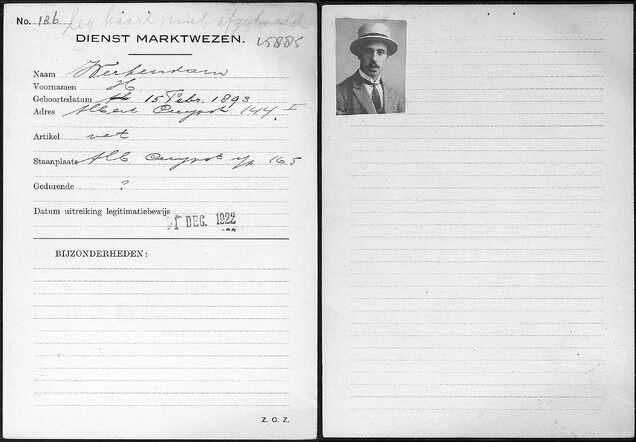 No. 126 Leg kaart niet afgehaald
DIENST MARKTWEZEN.
15885
Naam Werkendam
Voornamen H
Geboortedatum 15 Febr. 1893
Adres Albert Cuypst 144 I
Artikel vet
Staanplaats Alb Cuypst 165
Gedurende ?
Datum uitreiking legitimatiebewijs
DEC. 1922
BIJZONDERHEDEN:
Z. O. Z.